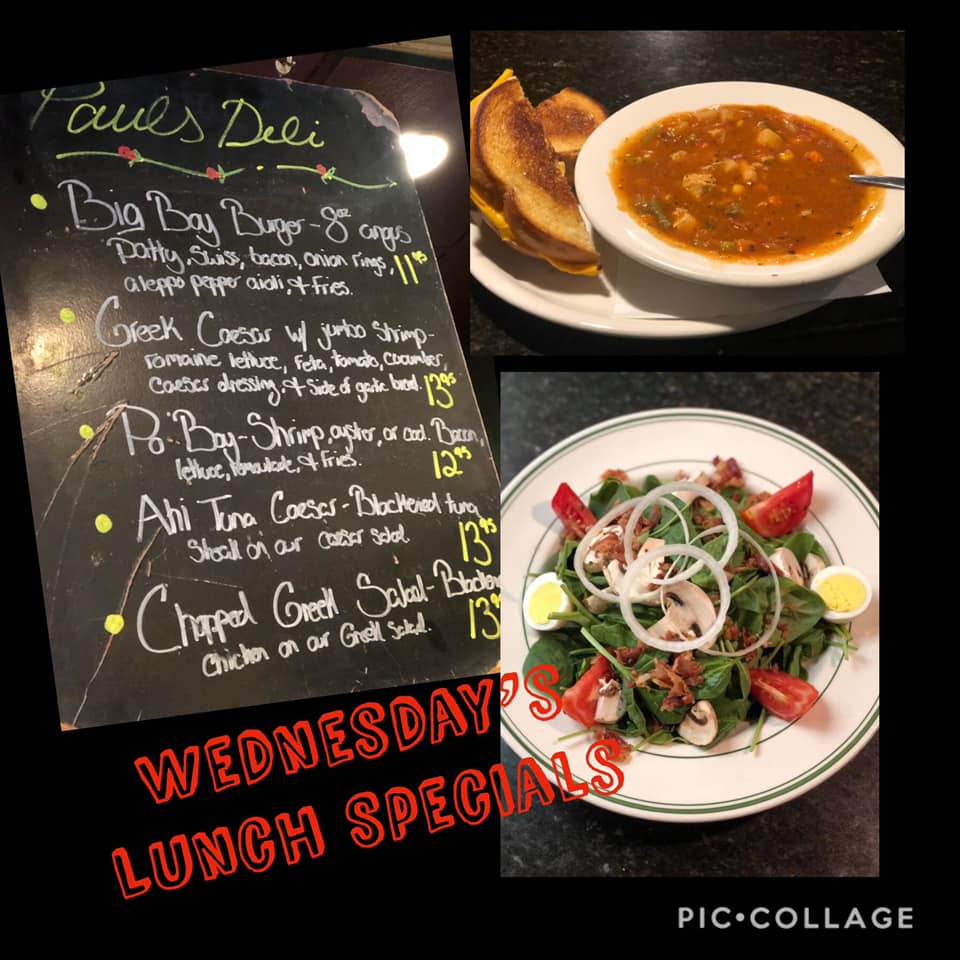 Paul's Deli
Big Bay Burger - 8oz angus
patty, Swiss, bacon, onion rings, 11.95
aleppo pepper aioli, & fries.
Greek Caesar w/ jumbo shrimp -
romaine lettuce, feta, tomato, cucumber,
caesar dressing, & side of garlic bread. 13.95
Po' Boy - Shrimp, oyster, or cod. Bacon,
lettuce, remoulade, & fries. 12.95
Ahi Tuna Caesar - Blackened tuna
steak on our caesar salad. 13.95
Chopped Greek Salad -
chicken on our Greek salad.
WEDNESDAY'S
LUNCH SPECIALS
PIC•COLLAGE